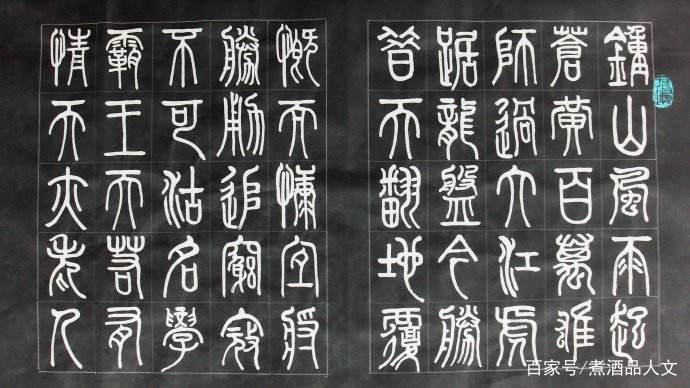 鍾山風雨起
蒼黄百萬雄
師過大江虎
踞龍盤今勝
昔天翻地覆
慨而慷宜將
勝勇追窮寇
不可沽名學
霸王天若有
情天亦老人
百家号/煮酒品人文